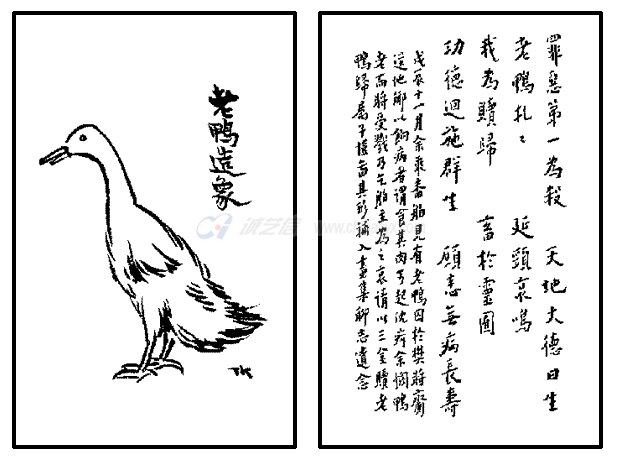 老鴨造象
TK
罪惡第一為殺 天地大德曰生
老鴨札〻 延頸哀鳴
我為贖歸 畜於靈囿
功德迴施群生 願悉無病長壽
戊辰十一月余乘番舶見有老鴨囚於樊將齎
送他鄉以飼病者謂食其肉可起沈疴余憫鴨
老而將受戮乃乞舶主為之哀請以三金贖老
鴨歸屬子愷畫其形補入畫集聊志遺念